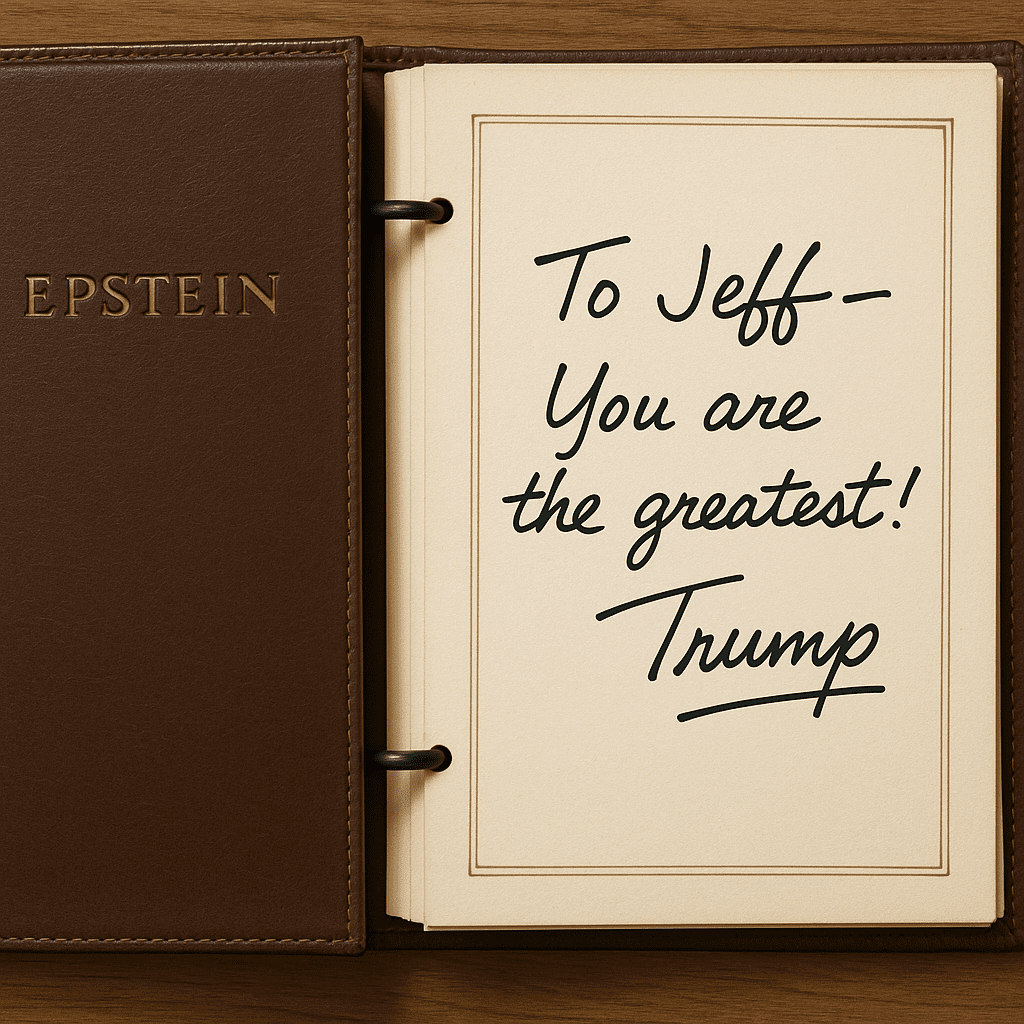 EPSTEIN
To Jeff—
You are
the greatest!
Trump